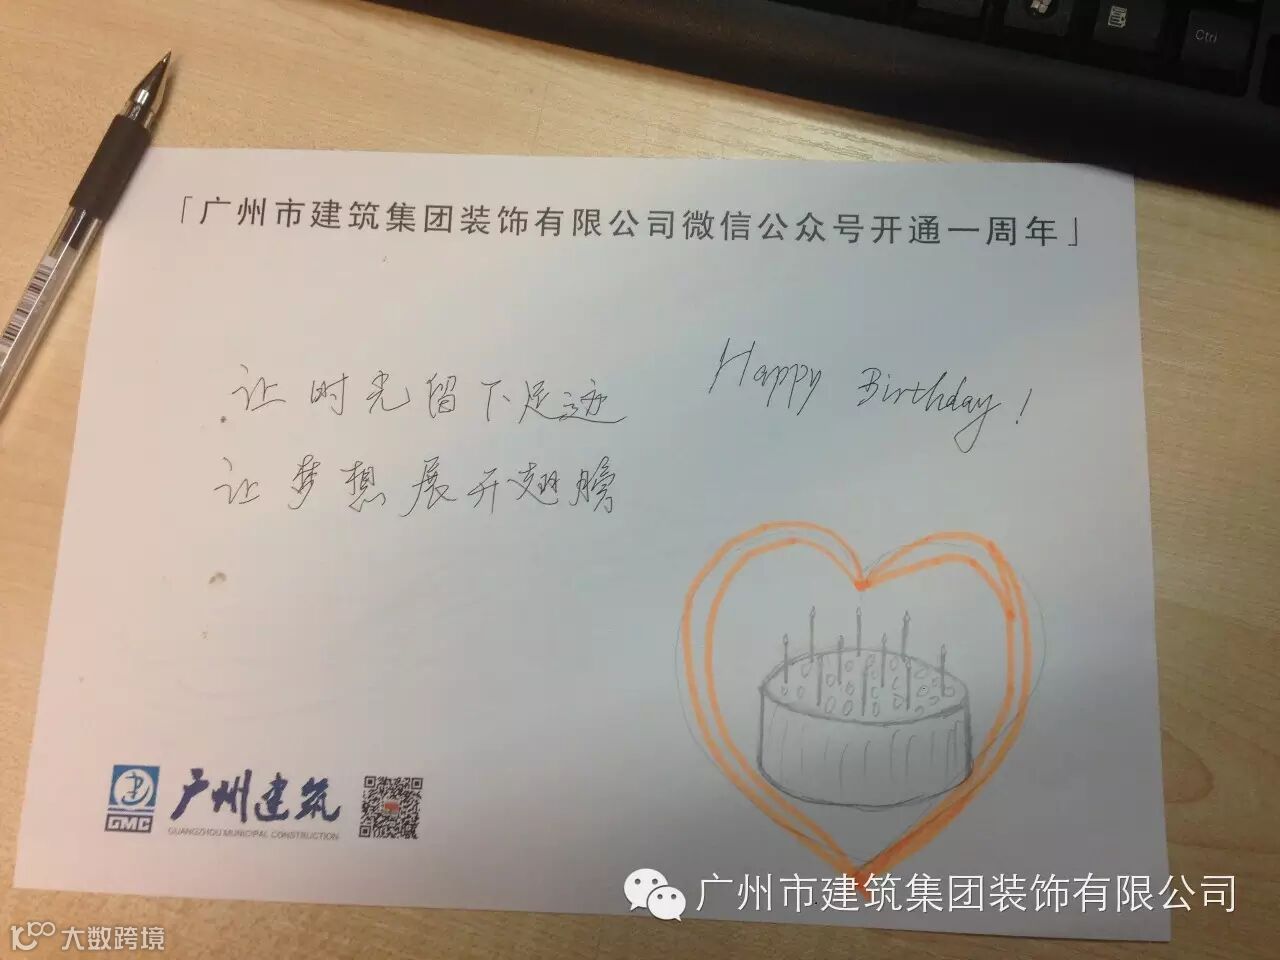 Ctrl
「广州市建筑集团装饰有限公司微信公众号开通一周年」
让时光留下足迹
让梦想展开翅膀
Happy Birthday!
GMC
广州建筑
GUANGZHOU MUNICIPAL CONSTRUCTION
广州市建筑集团装饰有限公司
10100 大数跨境